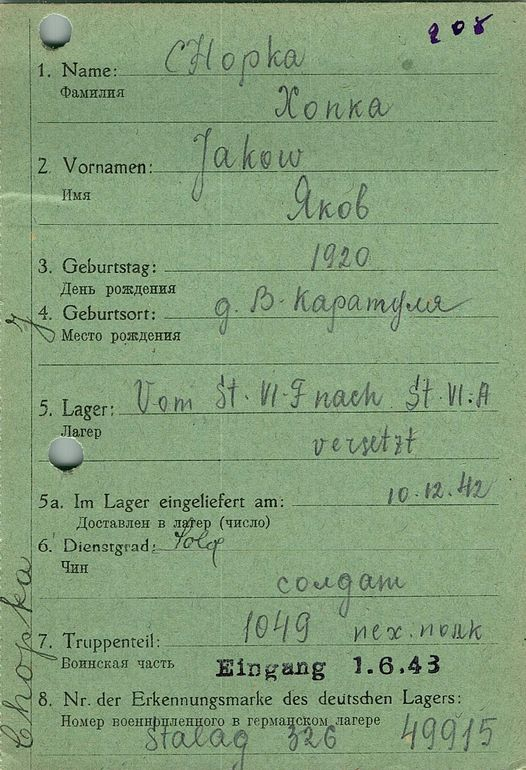 208
1. Name: CHopka
Фамилия
Хопка
2. Vornamen: Jakow
Имя
Яков
3. Geburtstag: 1920
День рождения
4. Geburtsort: д. В-Каратуля
Место рождения
5. Lager: Vom St. VI-F nach St. VI-A
Лагер
versetzt
5a. Im Lager eingeliefert am: 10.12.42
Доставлен в лагер (число)
6. Dienstgrad: Sold
Чин
солдат
7. Truppenteil: 1049 пех. полк
Воинская часть
Eingang 1.6.43
8. Nr. der Erkennungsmarke des deutschen Lagers:
Номер военнпленного в германском лагере
Stalag 326 49915
Chopka J